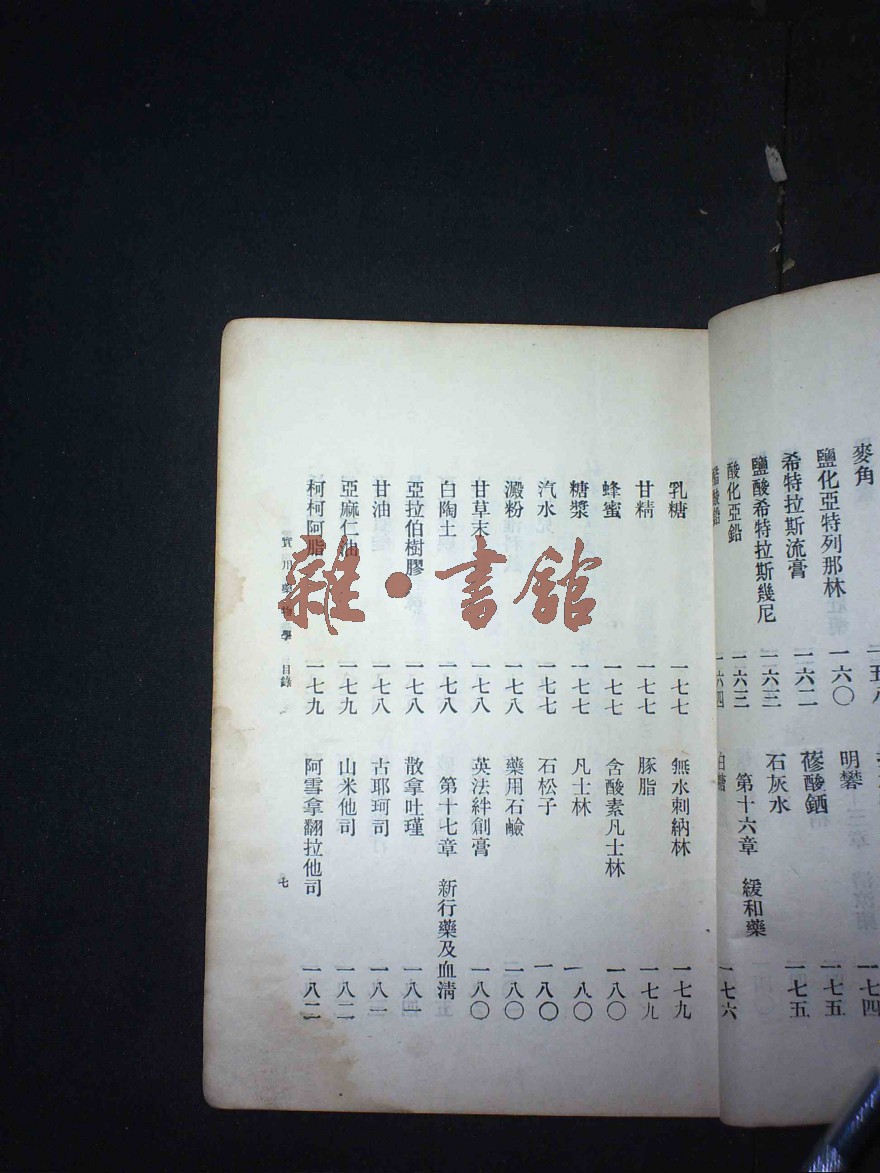 麥角
鹽化亞特列那林 一六〇
希特拉斯流膏 一六二
鹽酸希特拉斯幾尼 一六三
酸化亞鉛 一六三
一六四
一七四
明礬 一七五
蓚酸銫 一七五
石灰水
第十六章 緩和藥
一七六
乳糖 一七七
甘精 一七七
蜂蜜 一七七
糖漿 一七七
汽水 一七七
澱粉 一七八
甘草末 一七八
白陶土 一七八
亞拉伯樹膠 一七八
甘油 一七八
亞麻仁油 一七九
柯柯阿脂 一七九
無水刺納林 一七九
豚脂 一七九
含酸素凡士林 一八〇
凡士林 一八〇
石松子 一八〇
藥用石鹼 一八〇
英法絆創膏 一八〇
第十七章 新行藥及血清
散拿吐瑾 一八一
古耶珂司 一八一
山米他司 一八二
阿雪拿翻拉他司 一八二
實用藥物學 目錄
七
雜·書館